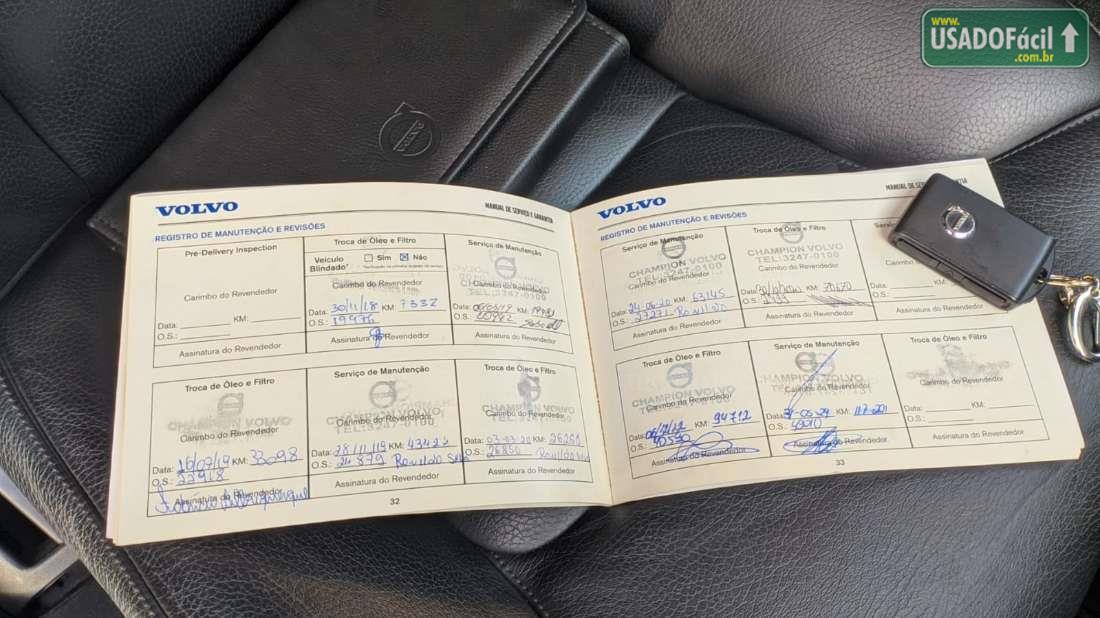 www.
USADOFácil
.com.br
VOLVO
MANUAL DE SERVIÇO E GARANTIA
REGISTRO DE MANUTENÇÃO E REVISÕES
Pre-Delivery Inspection
Carimbo do Revendedor
Data: KM:
O.S.:
Assinatura do Revendedor
Troca de Óleo e Filtro
Veículo Sim Não
Blindado
Carimbo do Revendedor
Data: 30/11/18 KM: 7332
O.S.: 19976
Assinatura do Revendedor
Serviço de Manutenção
TEL:3247-0100
Carimbo do Revendedor
Data: KM:
O.S.: 20982
Assinatura do Revendedor
Troca de Óleo e Filtro
CHAMPION VOLVO
TEL:3247-0100
Carimbo do Revendedor
Data: 16/07/19 KM: 33098
O.S.: 22918
Assinatura do Revendedor
Serviço de Manutenção
CHAMPION VOLVO
TEL:3247-0100
Carimbo do Revendedor
Data: 28/11/19 KM: 43423
O.S.: 24879 Ronildo
Assinatura do Revendedor
Troca de Óleo e Filtro
CHAMPION VOLVO
TEL:3247-0100
Carimbo do Revendedor
Data: 03-03-20 KM:
O.S.: 26850 Ronildo
Assinatura do Revendedor
32
VOLVO
MANUAL DE SERVIÇO E GARANTIA
REGISTRO DE MANUTENÇÃO E REVISÕES
Serviço de Manutenção
CHAMPION VOLVO
TEL:3247-0100
Carimbo do Revendedor
Data: 24-06-20 KM: 63145
O.S.: 27271 Ronildo
Assinatura do Revendedor
Troca de Óleo e Filtro
CHAMPION VOLVO
TEL:3247-0100
Carimbo do Revendedor
Data: KM:
O.S.:
Assinatura do Revendedor
Carimbo do Revendedor
Data:
O.S.:
Assinatura do Revendedor
Troca de Óleo e Filtro
CHAMPION VOLVO
TEL:3247-0100
Carimbo do Revendedor
Data: KM: 94712
O.S.: 40590
Assinatura do Revendedor
Serviço de Manutenção
CHAMPION VOLVO
Carimbo do Revendedor
Data: KM:
O.S.: 49010
Assinatura do Revendedor
Troca de Óleo e Filtro
Carimbo do Revendedor
Data: KM:
O.S.:
Assinatura do Revendedor
33